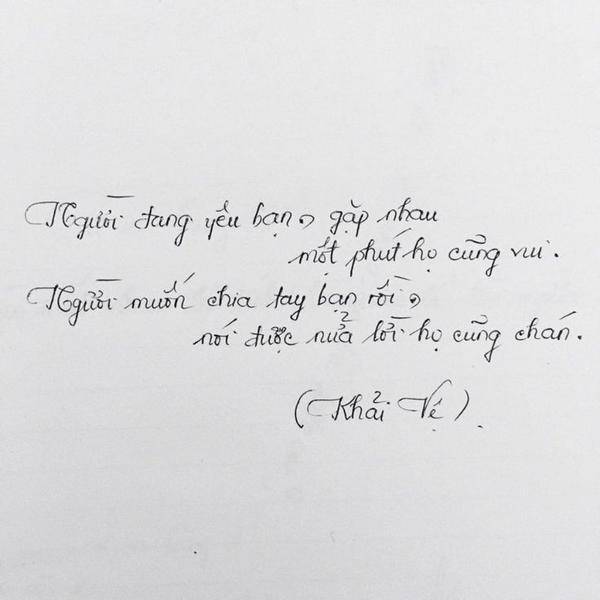 Người đang yêu bạn, gặp nhau
một phút họ cũng vui.
Người muốn chia tay bạn rồi,
nói được nửa lời họ cũng chán.
(Khải Vệ)